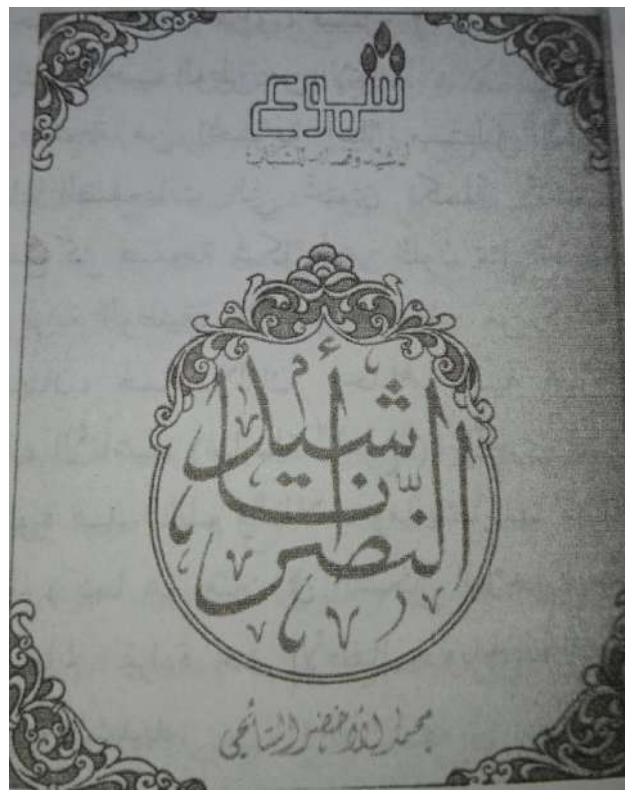 شموع
أناشيد وقصائد للشباب
أناشيد
النّصر
محمد الأخضر السائحي